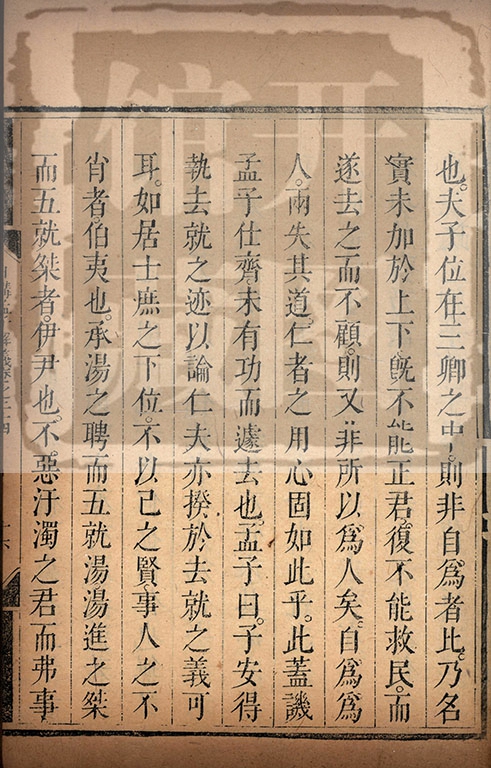 也。夫子位在三卿之中。則非自爲者比。乃名
實未加於上下。旣不能正君。復不能救民。而
遂去之而不顧。則又非所以爲人矣。自爲爲
人。兩失其道。仁者之用心固如此乎。此蓋譏
孟子仕齊。未有功而遽去也。孟子曰。子安得
執去就之迹以論仁夫亦揆於去就之義可
耳。如居士庶之下位。不以己之賢。事人之不
肖者伯夷也。承湯之聘而五就湯湯進之桀
而五就桀者。伊尹也。不。惡汙濁之君而弗事